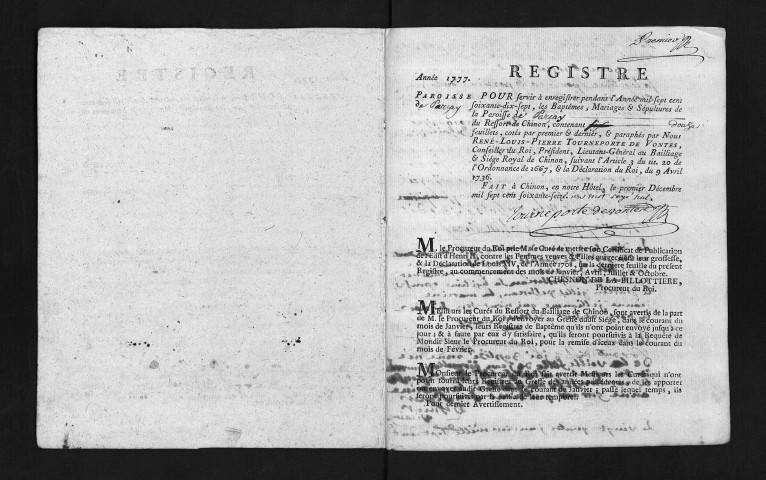 Premier
REGISTRE
Année 1777.
PAROISSE POUR servir à enregistrer pendant l'Année mil sept cent
de Parçay soixante-dix-sept, les Baptêmes, Mariages & Sépultures de
la Paroisse de Parçay
du Ressort de Chinon, contenant douze
feuillets, cotés par premier & dernier, & paraphés par Nous
RENÉ-LOUIS-PIERRE TOURNEPORTE DE VONTES,
Conseiller du Roi, Président, Lieutenant-Général au Bailliage
& Siège Royal de Chinon, suivant l'Article 3 du tit. 20 de
l'Ordonnance de 1667, & la Déclaration du Roi, du 9 Avril
1736.
FAIT à Chinon, en notre Hôtel, le premier Décembre
mil sept cent soixante-seize. un mot rayé nul.
Tourneporte de vontes
M. le Procureur du Roi prie M. le Curé de mettre son Certificat de Publication
de l'Edit d'Henri II, contre les Femmes veuves & Filles qui recèlent leur grossesse,
& la Déclaration de Louis XIV, de l'Année 1708, sur la derniere feuille du présent
Registre, au commencement des mois de Janvier, Avril, Juillet & Octobre.
CHESNON DE LA BILLOTTIERE,
Procureur du Roi.
Messieurs les Curés du Ressort du Bailliage de Chinon, sont avertis de la part
de M. le Procureur du Roi d'envoyer au Greffe dudit Siège, dans le courant du
mois de Janvier, leurs Registres de Baptême qu'ils n'ont point envoyé jusqu'à ce
jour; & à faute par eux d'y satisfaire, qu'ils seront poursuivis à la Requête de
Mondit Sieur le Procureur du Roi, pour la remise d'iceux dans le courant du
mois de Février.
Monsieur le Procureur du Roi fait avertir Messieurs les Curés qui n'ont
point fourni leurs Registres au Greffe des années précédentes, de les apporter
ou envoyer audit Greffe dans le courant de Janvier; passé lequel temps, ils
seront poursuivis par la saisie de leur temporel.
Pour dernier Avertissement.